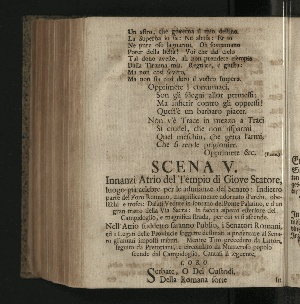 Un astro, che governa il mio destino.
La Superba io fui: Nè
Nè pure oso lagnarmi. Oh sovrumano
Poter della Bellà! Voi che dal cielo
Tal dono aveste, ah non prendete esempio
Dalla Tiranna mia. Regnate, è giusto:
Ma non così severo,
Ma non sia così duro il vostro Impero.
Opprimete i contumaci,
Son gli sdegni allor permessi:
Ma infierir contro gli oppressi!
Questo è un barbaro piacer.
Non v'è Trace in mezzo a Traci
Sì crudel, che non risparmi
Quel meschin, che getta l'armi,
Che si rende prigionier.
Opprimete &c. (Parte)
SCENA V.
Innanzi Atrio del Tempio di Giove Statore,
luogo già celebre per le adunanze del Senato: Indietro
parte del Foro Romano, magnificamente adornato d'archi, obe-
lischi e trofei: Da lati Vedute in lontano del Monte Palatino, e d'un
gran tratto della Via Sacra: In faccia aspetto esteriore del
Campidoglio, e magnifica strada, per cui vi si ascende.
Nell'Atrio suddetto saranno Publio, i Senatori Romani,
e i Legati delle Provincie soggette destinati a presentare al Sena-
to gli annui imposti tributi. Mentre Tito preceduto da Littori,
seguito da Pretoriani, e circondato da Numeroso popolo
scende dal Campidoglio, Cantasi il seguente,
CORO
Serbate, O Dei Custodi,
Della Romana sorte